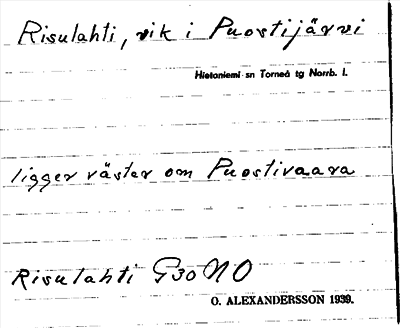 Risulahti, vik i Puostijärvi
Hietaniemi sn Torneå tg Norrb. l.
ligger väster om Puostivaara
Risulahti G30 NO
O. ALEXANDERSSON 1939.